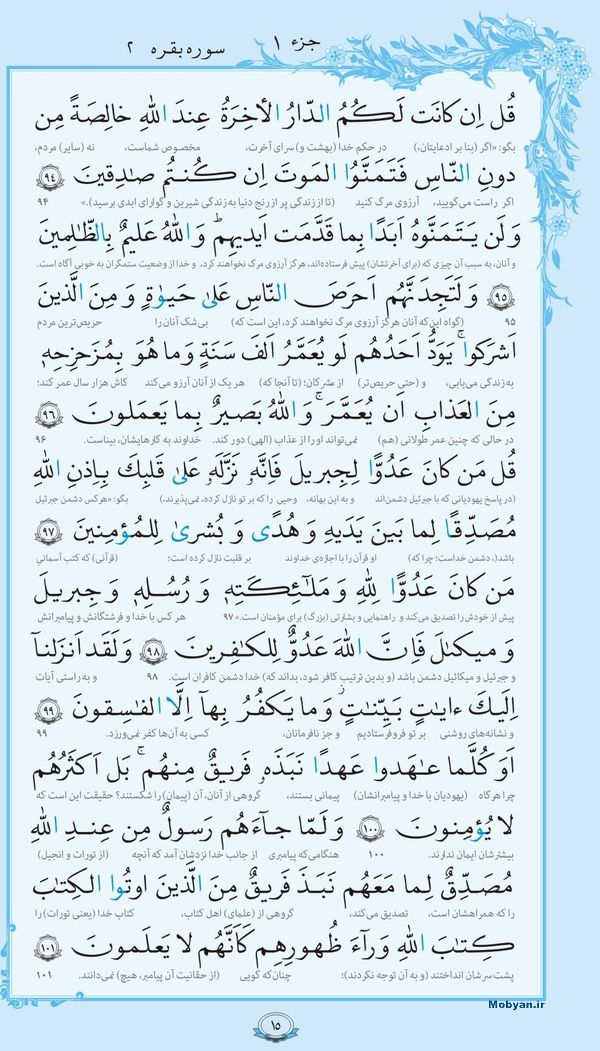 جزء ۱
سوره بقره ۲
قُل اِن كانَت لَكُمُ الدّارُ الأخِرَةُ عِندَ اللهِ خالِصَةً مِن
بگو: «اگر (بنا بر ادعایتان،) در حکم خدا (بهشت و) سرای آخرت، مخصوص شماست، نه (سایر) مردم،
دونِ النّاسِ فَتَمَنَّوُا المَوتَ اِن كُنتُم صادِقينَ ۹۴
اگر راست می‌گویید، آرزوی مرگ کنید (تا از زندگی پر از رنج دنیا به زندگی شیرین و گوارای ابدی برسید).» ۹۴
وَ لَن يَتَمَنَّوهُ اَبَدًا بِما قَدَّمَت اَيديهِم وَ اللهُ عَليمٌ بِالظّالِمينَ
و آنان، به سبب آن چیزی که (برای آخرتشان) پیش فرستاده‌اند، هرگز آرزوی مرگ نخواهند کرد، و خدا از وضعیت ستمگران به خوبی آگاه است.
۹۵ وَ لَتَجِدَنَّهُم اَحرَصَ النّاسِ عَلىٰ حَيوٰةٍ وَ مِنَ الَّذينَ
۹۵ (گواه این‌که آنان هرگز آرزوی مرگ نخواهند کرد، این است که) بی‌شک آنان را حریص‌ترین مردم
اَشرَكوا يَوَدُّ اَحَدُهُم لَو يُعَمَّرُ اَلفَ سَنَةٍ وَ ما هُوَ بِمُزَحزِحِهٖ
به زندگی می‌یابی، و (حتی حریص‌تر) از مشرکان؛ (تا آنجا که) هر یک از آنان آرزو می‌کند کاش هزار سال عمر کند؛
مِنَ العَذابِ اَن يُعَمَّرَ وَ اللهُ بَصيرٌ بِما يَعمَلونَ ۹۶
در حالی که چنین عمر طولانی (هم) نمی‌تواند او را از عذاب (الهی) دور کند. خداوند به کارهایشان، بیناست. ۹۶
قُل مَن كانَ عَدُوًّا لِجِبريلَ فَاِنَّهٗ نَزَّلَهٗ عَلىٰ قَلبِكَ بِاِذنِ اللهِ
(در پاسخ یهودیانی که با جبرئیل دشمن‌اند و به این بهانه، وحیی را که بر تو نازل کرده، نمی‌پذیرند،) بگو: «هرکس دشمن جبرئیل
مُصَدِّقًا لِما بَينَ يَدَيهِ وَ هُدًى وَ بُشرىٰ لِلمُؤمِنينَ ۹۷
باشد(، دشمن خداست؛ چرا که) او قرآن را با اجازه‌ی خداوند بر قلبت نازل کرده است؛ (قرآنی) که کتب آسمانی
مَن كانَ عَدُوًّا لِلهِ وَ مَلٰئِكَتِهٖ وَ رُسُلِهٖ وَ جِبريلَ
پیش از خودش را تصدیق می‌کند و راهنمایی و بشارتی (بزرگ) برای مؤمنان است.» ۹۷ هر کس با خدا و فرشتگانش و پیامبرانش
وَ ميكىٰلَ فَاِنَّ اللهَ عَدُوٌّ لِلكٰفِرينَ ۹۸ وَ لَقَد اَنزَلنآ
و جبرئیل و میکائیل دشمن باشد (و بدین ترتیب کافر شود، بداند که) خدا دشمن کافران است. ۹۸ و به راستی آیات
اِلَيكَ ءاياتٍ بَيِّناتٍ وَ ما يَكفُرُ بِهآ اِلَّا الفاسِقونَ ۹۹
و نشانه‌های روشنی بر تو فروفرستادیم و جز نافرمانان، کسی به آن‌ها کفر نمی‌ورزد. ۹۹
اَوَ كُلَّما عٰهَدوا عَهدًا نَبَذَهٗ فَريقٌ مِنهُم بَل اَكثَرُهُم
چرا هرگاه (یهودیان با خدا و پیامبرانشان) پیمانی بستند، گروهی از آنان، آن (پیمان) را شکستند؟ حقیقت این است که
لا يُؤمِنونَ ۱۰۰ وَ لَمّا جآءَهُم رَسولٌ مِن عِندِ اللهِ
بیشترشان ایمان ندارند. ۱۰۰ هنگامی‌که پیامبری از جانب خدا نزدشان آمد که آنچه (از تورات و انجیل)
مُصَدِّقٌ لِما مَعَهُم نَبَذَ فَريقٌ مِنَ الَّذينَ اوتُوا الكِتٰبَ
را که همراهشان است، تصدیق می‌کند، گروهی از (علمای) اهل کتاب، کتاب خدا (یعنی تورات) را
كِتٰبَ اللهِ وَرآءَ ظُهورِهِم كَاَنَّهُم لا يَعلَمونَ ۱۰۱
پشت سرشان انداختند (و به آن توجه نکردند)؛ چنان‌که گویی (از حقانیت آن پیامبر، هیچ) نمی‌دانند. ۱۰۱
۱۵
Mobyan.ir